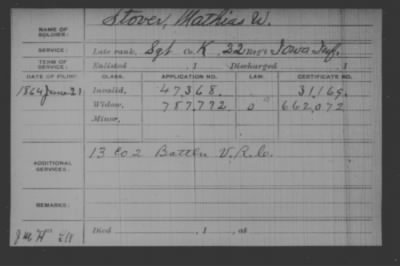 NAME OF SOLDIER: Stover, Mathias W.
SERVICE: Late rank, Sgt Co. K 22 Reg't Iowa Inf.
TERM OF SERVICE: Enlisted , 1 Discharged , 1
DATE OF FILING. CLASS. APPLICATION NO. LAW. CERTIFICATE NO.
1864 June 21 Invalid, 47,368. 31,169.
Widow, 787,772 0 662,072
Minor,
ADDITIONAL SERVICES: 13 Co 2 Battln V.R.C.
REMARKS:
Died , 1 , at